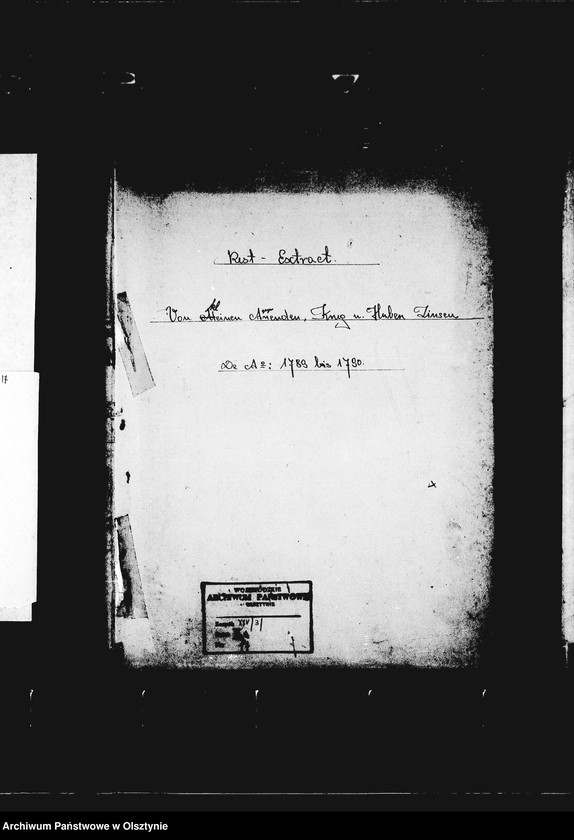 Rest - Extract.
Von Kleinen Arrenden, Krug u. Huben Zinsen
De Aº: 1789 bis 1790.
17
WOJEWÓDZKIE
ARCHIWUM PAŃSTWOWE
OLSZTYNIE
Zespół XIV/3/
Archiwum Państwowe w Olsztynie